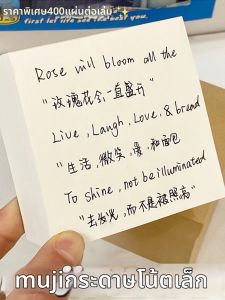 ราคาพิเศษ400แผ่นต่อเล่ม
Rose will bloom all the
"玫瑰花会一直盛开"
Live, Laugh, Love, & bread
"生活，微笑，爱，和面包
To shine, not be illuminated
"去发光，而不是被照亮"
mujiกระดาษโน้ตเล็ก